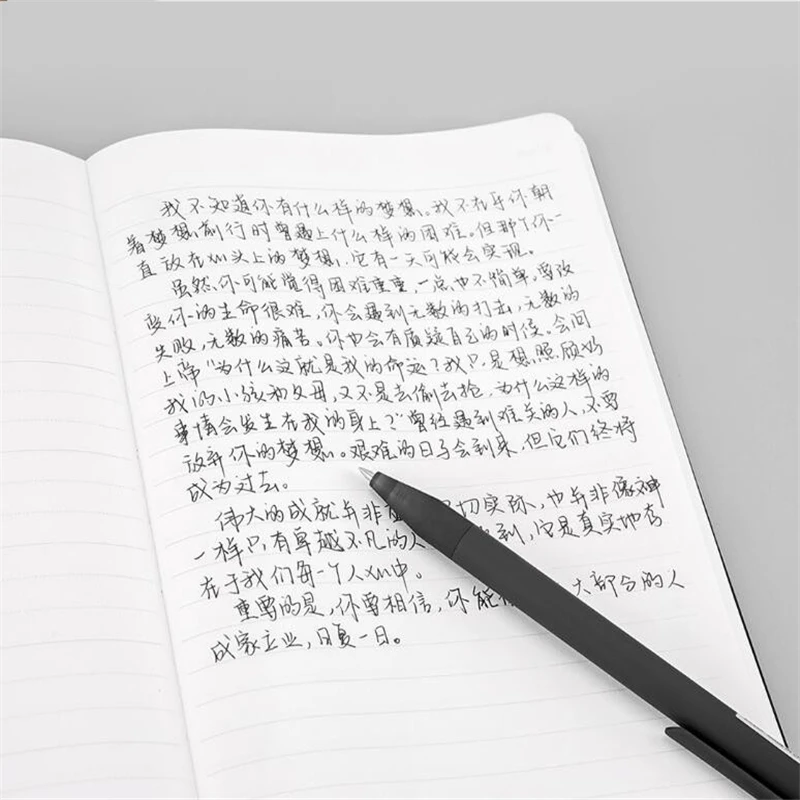 我不知道你有什么样的梦想。我不在乎你朝
着梦想前行时曾遇上什么样的困难。但那个你一
直放在心头上的梦想,它有一天可能会实现。
虽然,你可能觉得困难重重,一点也不简单。要改
变你的生命很难,你会遇到无数的打击,无数的
失败,无数的痛苦。你也会有质疑自己的时候。会问
上帝“为什么这就是我的命运?我只是想照顾好
我的小孩和父母,又不是去偷去抢,为什么这样的
事情会发生在我的身上?”曾经遇到难关的人,不要
放弃你的梦想。艰难的日子会到来,但它们终将
成为过去。
伟大的成就并非 切实际,也并非像神
一样只有卓越不凡的人 到,它是真实地存
在于我们每一个人心中。
重要的是,你要相信,你能 大部分的人
成家立业,日复一日。